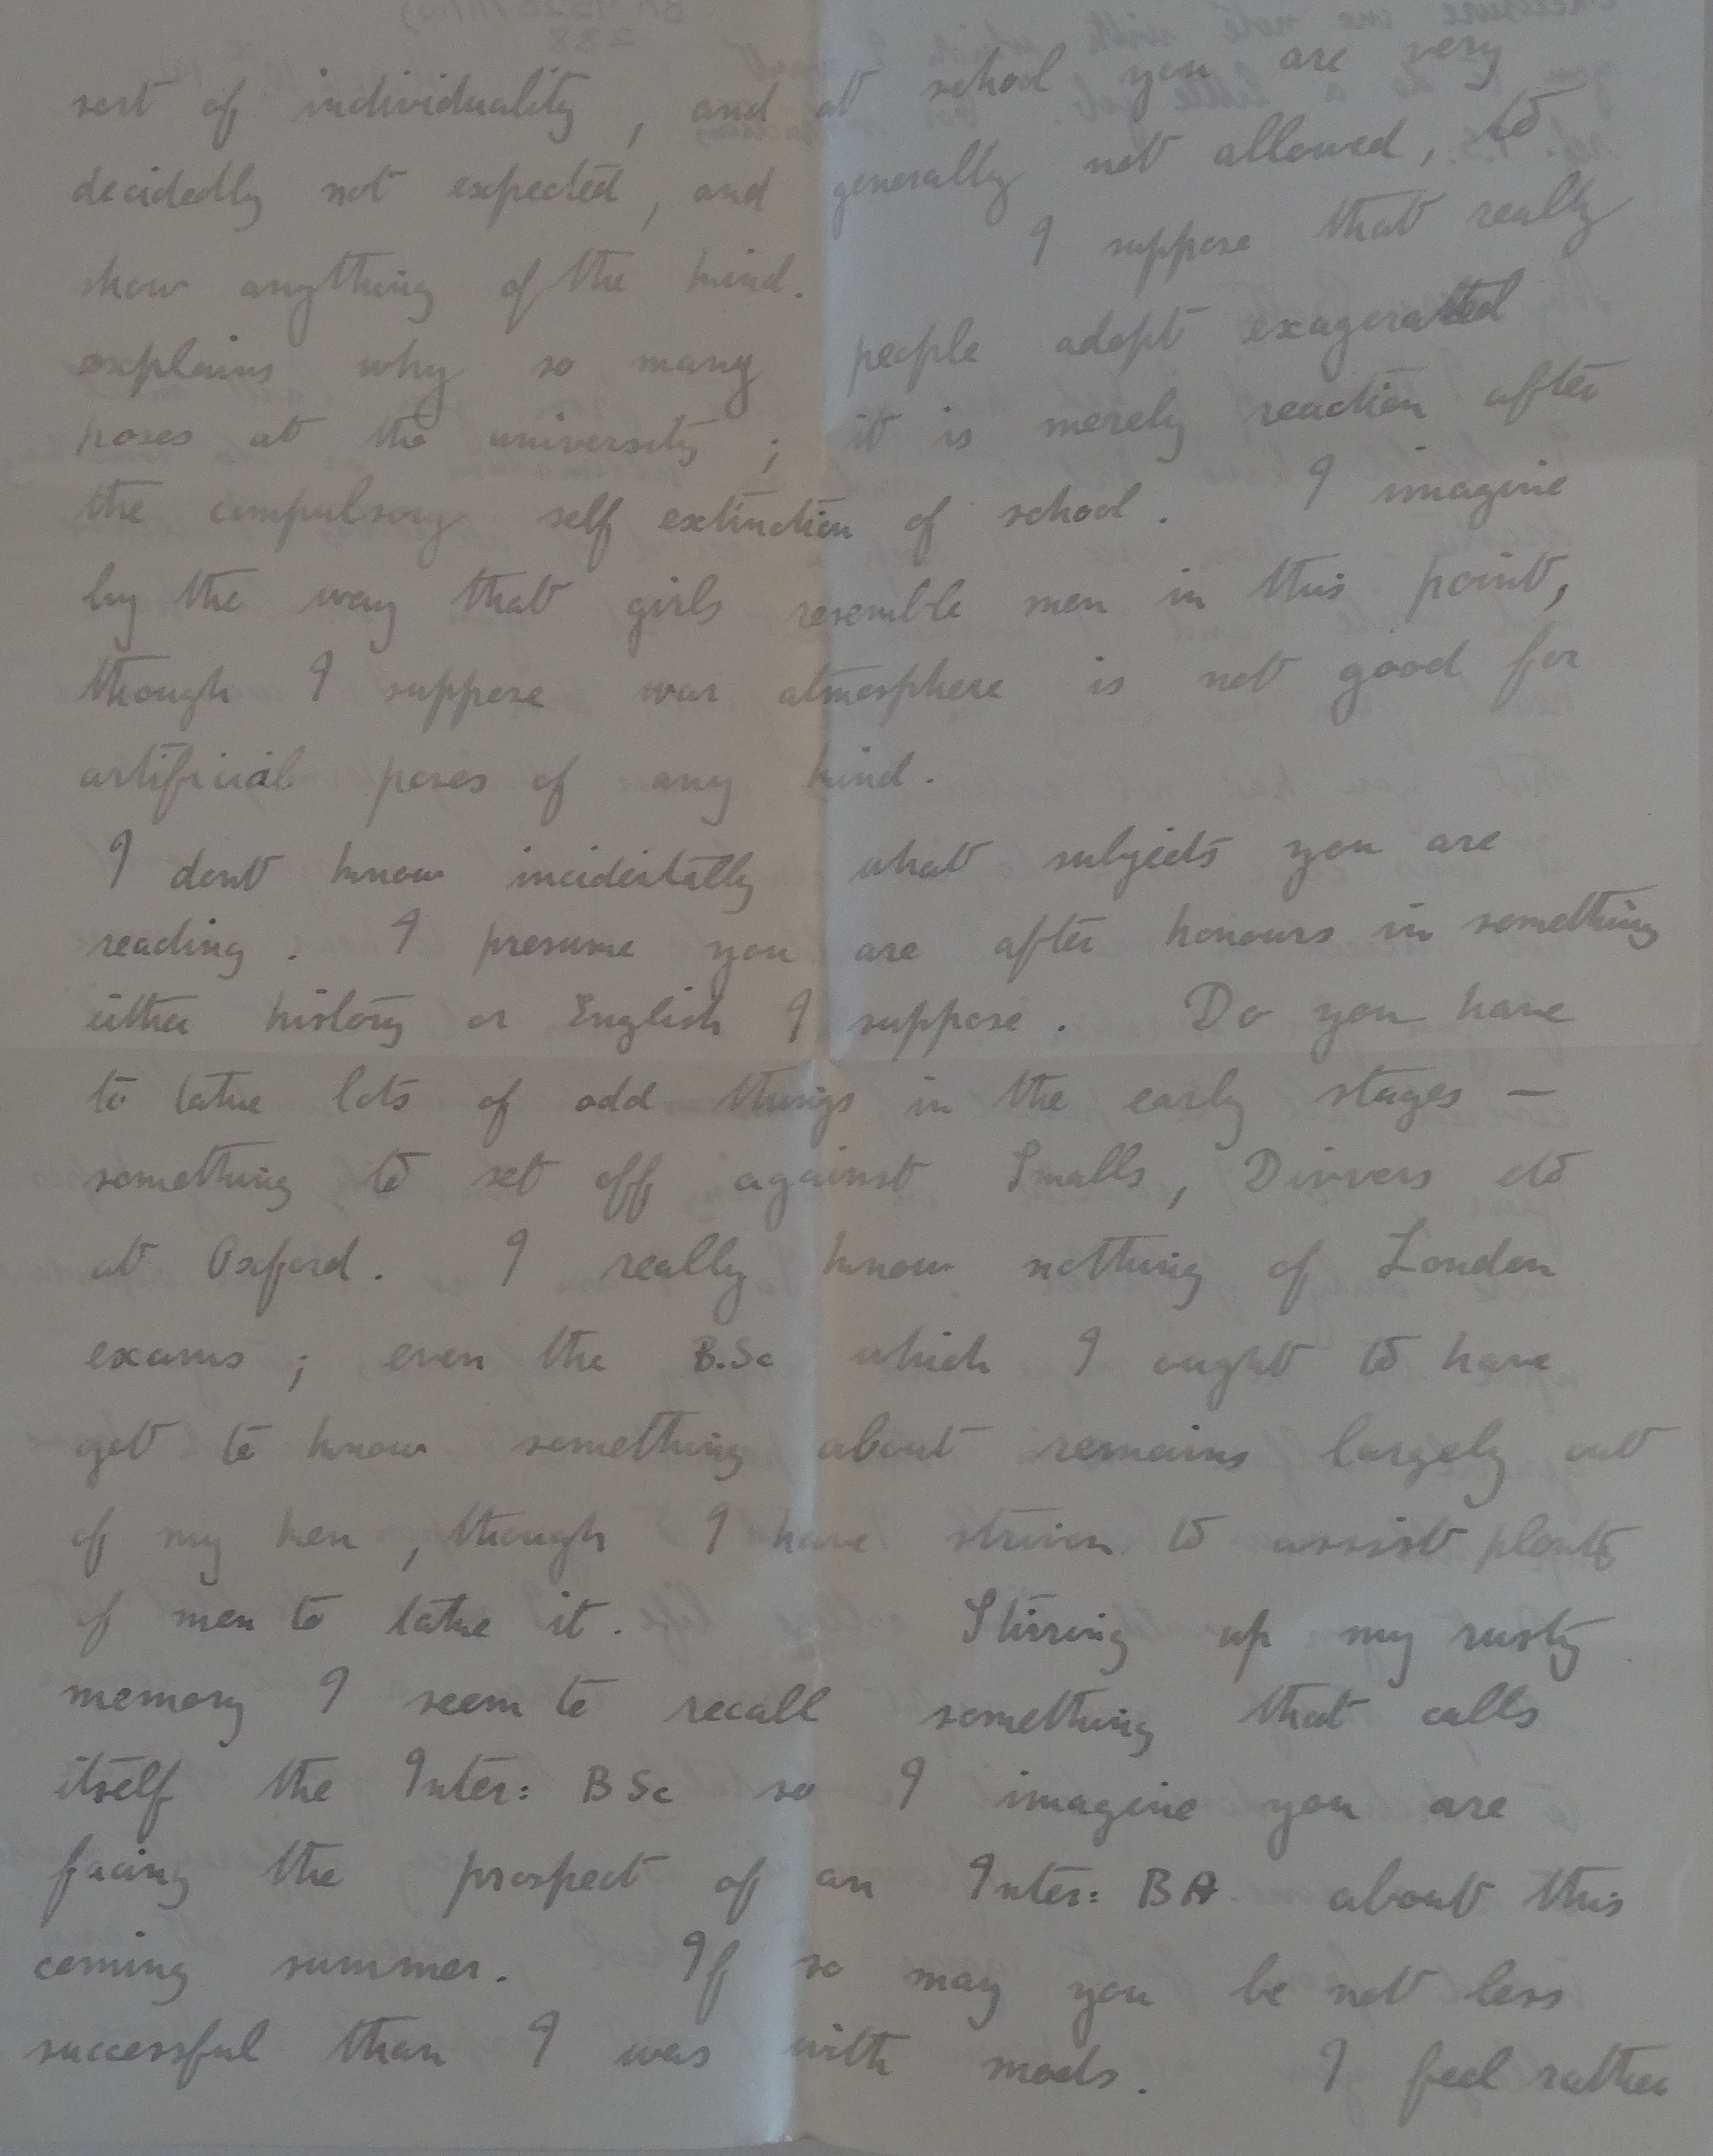 sort of individuality, and at school you are very
decidedly not expected, and generally not allowed, to
show anything of the kind. I suppose that really
explains why so many people adopt exagerated
poses at the university; it is merely reaction after
the compulsory self extinction of school. I imagine
by the way that girls resemble men in this point,
though I suppose war atmosphere is not good for
artificial poses of any kind.
I dont know incidentally what subjects you are
reading. I presume you are after honours in something
either history or English I suppose. Do you have
to take lots of odd things in the early stages –
something to set off against Smalls, Divvers etc
at Oxford. I really know nothing of London
exams; even the B.Sc which I ought to have
got to know something about remains largely out
of my ken, though I have striven to assist plenty
of men to take it. Stirring up my rusty
memory I seem to recall something that calls
itself the Inter: BSc so I imagine you are
facing the prospect of an Inter: BA about this
coming summer. If so may you be not less
successful than I was with mods. I feel rather